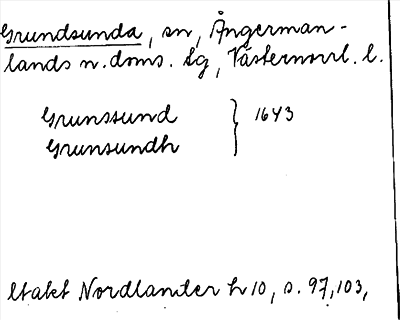 Grundsunda, sn, Ångerman-
lands n. doms. lg, Västernorrl. l.
Grunssund } 1643
Grunsundh
Utakt Nordlander h 10, s. 97, 103,